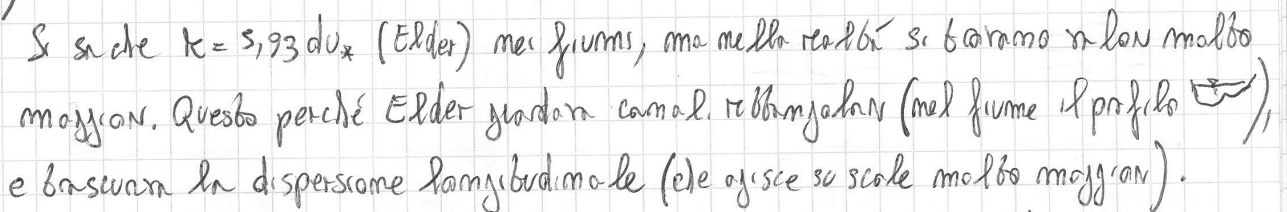 Si sa che k = 5,93 du* (Elder) nei fiumi, ma nella realtà si trovano valori molto
maggiori. Questo perché Elder guardava canali rettangolari (nel fiume il profilo ),
e trascurava la dispersione longitudinale (che agisce su scale molto maggiori).